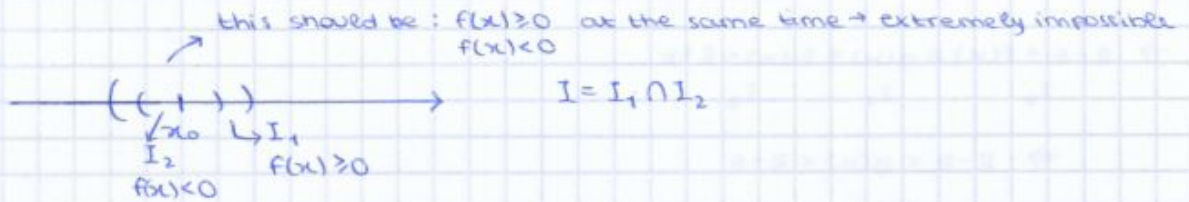 this should be : f(x)≥0 at the same time → extremely impossible
f(x)<0
I = I₁ ∩ I₂
x₀ I₁
I₂ f(x)≥0
f(x)<0